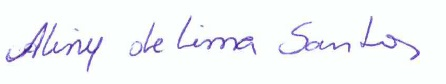 Aliny de Lima Santos